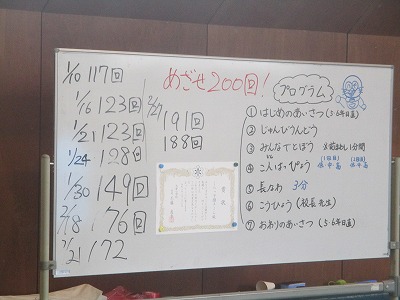 1/10 117回
1/16 123回
1/21 123回
1/24 128回
1/30 149回
2/18 176回
2/21 172
めざせ200回!
2/27 191回
188回
プログラム
① はじめのあいさつ(5・6年日直)
② じゅんびうんどう
③ みんなでとぼう ※前まわし1分間
④ こんぱっぴょう
⑤ 長なわ 3分
⑥ こうひょう(校長先生)
⑦ おわりのあいさつ(5・6年日直)
賞状